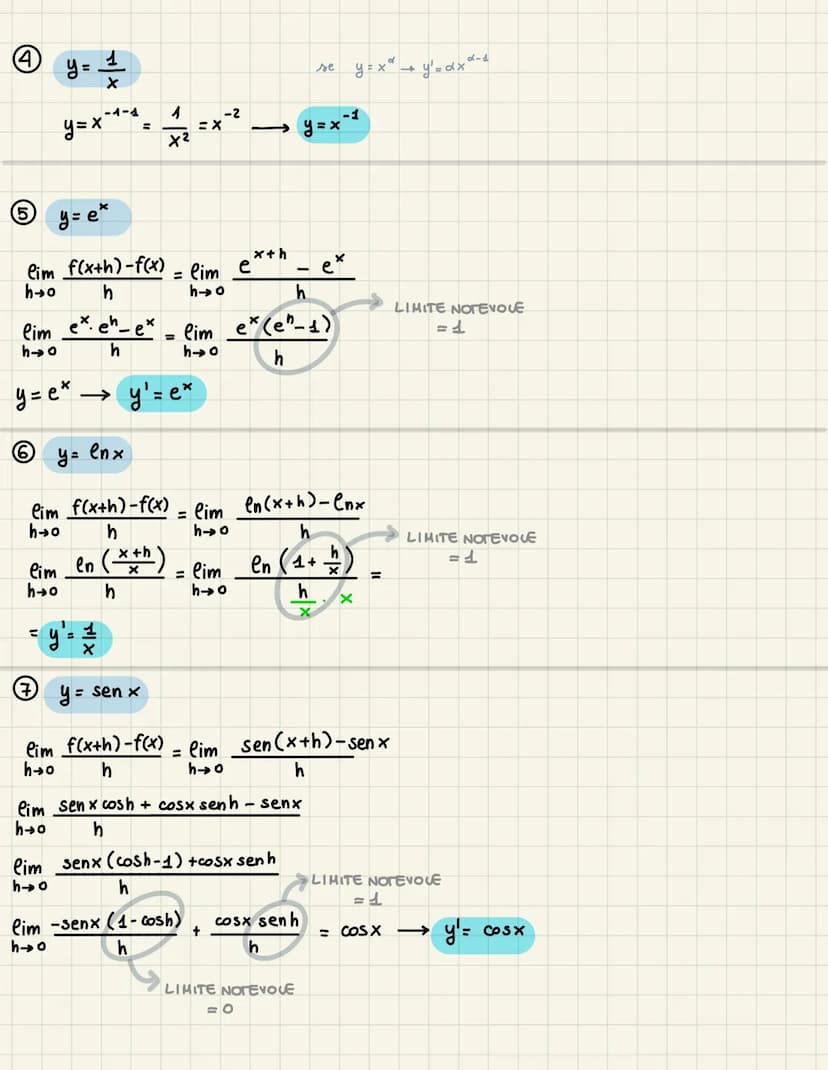 ④ y = 1/x
se y = x^α → y' = αx^(α-1)
y = x^(-1-1) = 1/x² = x^(-2) → y = x^(-1)
⑤ y = e^x
lim h→0 (f(x+h)-f(x))/h = lim h→0 (e^(x+h) - e^x)/h
LIMITE NOTEVOLE
= 1
lim h→0 (e^x · e^h - e^x)/h = lim h→0 (e^x (e^h - 1))/h
y = e^x → y' = e^x
⑥ y = ln x
lim h→0 (f(x+h)-f(x))/h = lim h→0 (ln(x+h) - ln x)/h
LIMITE NOTEVOLE
= 1
lim h→0 (ln((x+h)/x))/h = lim h→0 (ln(1 + h/x))/(h/x · x) =
= y' = 1/x
⑦ y = sen x
lim h→0 (f(x+h)-f(x))/h = lim h→0 (sen(x+h) - sen x)/h
lim h→0 (sen x cosh + cosx senh - senx)/h
lim h→0 (senx (cosh-1) + cosx senh)/h
LIMITE NOTEVOLE
= 1
lim h→0 (-senx (1-cosh))/h + (cosx senh)/h = cosx → y' = cosx
LIMITE NOTEVOLE
= 0